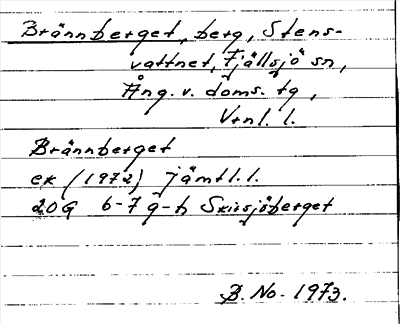 Brännberget, berg, Stens-
vattnet, Fjällsjö sn,
Ång. v. doms. tg,
Vrnl. l.
Brännberget
ek (1972) jämtl.l.
20G 6-7 g-h Skirsjöberget
B. No. 1973.